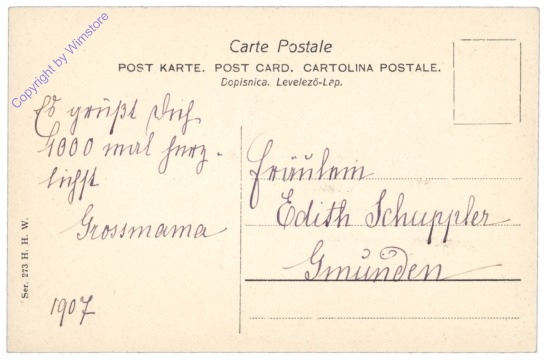 Carte Postale
POST KARTE. POST CARD. CARTOLINA POSTALE.
Dopisnica. Levelező-Lap.
Copyright by Wimstore
Es grüßt Dich
1000 mal herz-
lichst
Grossmama
1907
Fräulein
Edith Schuppler
Gmunden
Ser. 273 H. H. W.